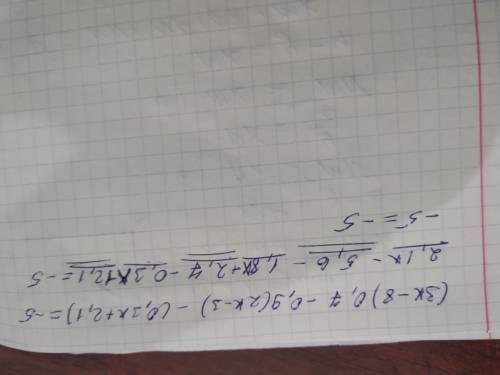 (3x-8)0,7-0,9(2x-3)-(0,3x+2,1)=-5
2,1x-5,6-1,8x+2,7-0,3x+2,1=-5
-5=-5